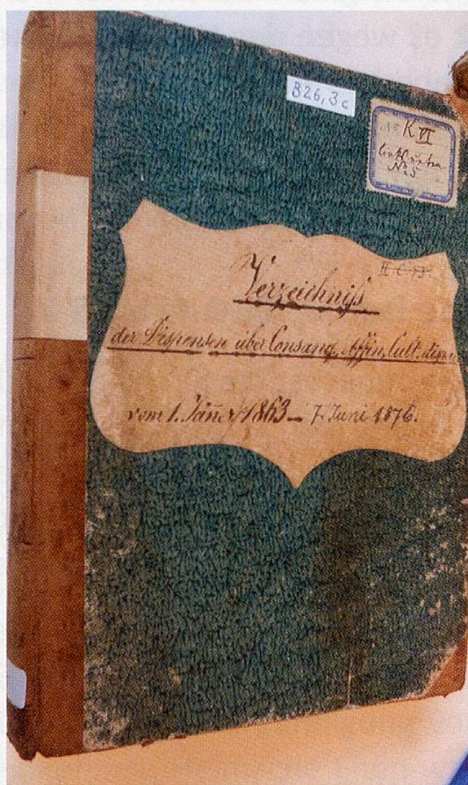 es wegen
826,3c
K VI
No 5
II C 13
Verzeichniß
der Dispensen über Consang. Affin. Cult.
vom 1. Jäner 1863 – 7. Juni 1876.